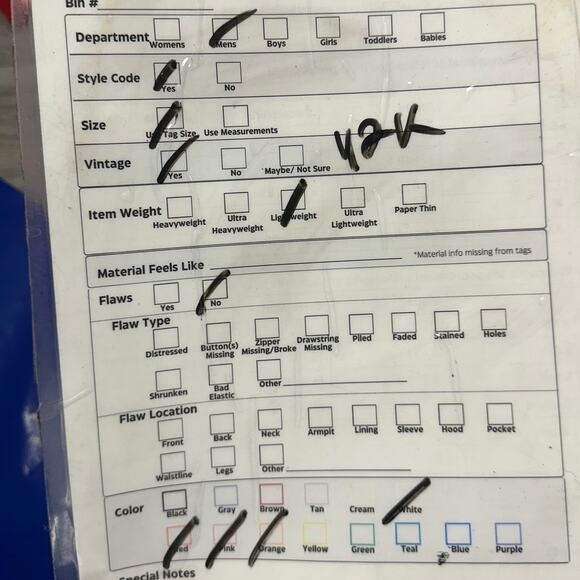 Bin #
Department Womens Mens Boys Girls Toddlers Babies
Style Code Yes No
Size Use Tag Size Use Measurements
Y2K
Vintage Yes No Maybe/ Not Sure
Item Weight Heavyweight Ultra Heavyweight Lightweight Ultra Lightweight Paper Thin
Material Feels Like *Material info missing from tags
Flaws Yes No
Flaw Type
Distressed Button(s) Missing Zipper Missing/Broke Drawstring Missing Piled Faded Stained Holes
Shrunken Bad Elastic Other
Flaw Location
Front Back Neck Armpit Lining Sleeve Hood Pocket
Waistline Legs Other
Color Black Gray Brown Tan Cream White
Red Pink Orange Yellow Green Teal Blue Purple
Special Notes